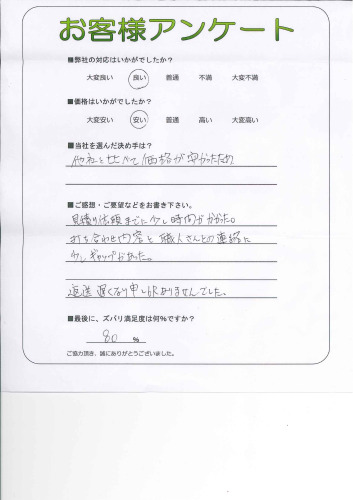 お客様アンケート
■弊社の対応はいかがでしたか？
大変良い 良い 普通 不満 大変不満
■価格はいかがでしたか？
大変安い 安い 普通 高い 大変高い
■当社を選んだ決め手は？
他社と比べて価格が安かったため
■ご感想・ご要望などをお書き下さい。
見積り依頼までに少し時間がかかった。
打ち合わせ内容と職人さんとの連絡に
少しギャップがあった。
返送遅くなり申し訳ありませんでした。
■最後に、ズバリ満足度は何％ですか？
80 ％
ご協力頂き、誠にありがとうございました。